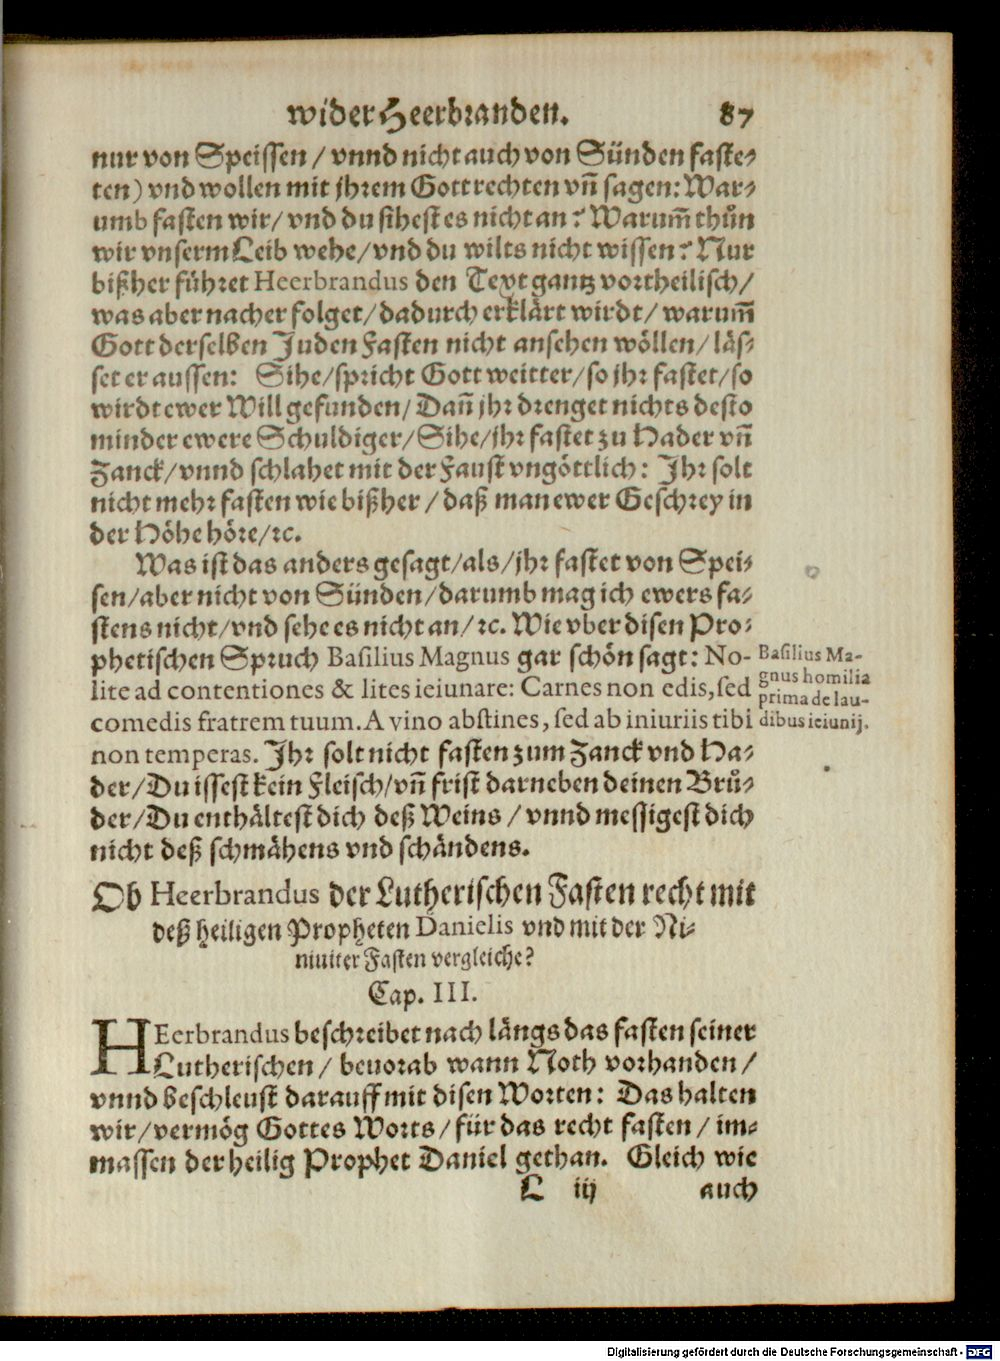 wider Heerbranden. 87
nur von Speissen / vnnd nicht auch von Sünden faste-
ten) vnd wollen mit jhrem Gott rechten vñ sagen: War-
umb fasten wir / vnd du sihest es nicht an? Warum̃ thůn
wir vnserm Leib wehe / vnd du wilts nicht wissen? Nur
bißher führet Heerbrandus den Text gantz vortheilisch /
was aber nacher folget / dadurch erklärt wirdt / warum̃
Gott derselben Juden Fasten nicht ansehen wöllen / läs-
set er aussen: Sihe / spricht Gott weitter / so jhr fastet / so
wirdt ewer Will gefunden / Dañ jhr drenget nichts desto
minder ewere Schuldiger / Sihe / jhr fastet zu Hader vñ
Zanck / vnnd schlahet mit der Faust vngöttlich: Jhr solt
nicht mehr fasten wie bißher / daß man ewer Geschrey in
der Höhe höre / ꝛc.
Was ist das anders gesagt / als / jhr fastet von Spei-
sen / aber nicht von Sünden / darumb mag ich ewers fa-
stens nicht / vnd sehe es nicht an / ꝛc. Wie vber disen Pro-
phetischen Spruch Basilius Magnus gar schön sagt: No-
lite ad contentiones & lites ieiunare: Carnes non edis, sed
comedis fratrem tuum. A vino abstines, sed ab iniuriis tibi
non temperas. Jhr solt nicht fasten zum Zanck vnd Ha-
der / Du issest kein Fleisch / vñ frist darneben deinen Brů-
der / Du enthältest dich deß Weins / vnnd messigest dich
nicht deß schmähens vnd schändens.
Basilius Ma-
gnus homilia
prima de lau-
dibus ieiunij.
Ob Heerbrandus der Lutherischen Fasten recht mit
deß heiligen Propheten Danielis vnd mit der Ni-
niuiter Fasten vergleiche?
Cap. III.
HEerbrandus beschreibet nach längs das fasten seiner
Lutherischen / beuorab wann Noth vorhanden /
vnnd beschleust darauff mit disen Worten: Das halten
wir / vermög Gottes Worts / für das recht fasten / im-
massen der heilig Prophet Daniel gethan. Gleich wie
L iij auch
Digitalisierung gefördert durch die Deutsche Forschungsgemeinschaft - DFG